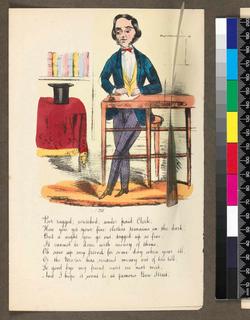 Poor ragged, wretched, under paid Clerk,
How you get your fine clothes remains in the dark
But at night you go out togged up so fine
It cannot be done with money of thine,
Oh save up my friend for some day when your ill
Or the Master has missed money out of his till
So good bye my friend next we met next,
And I hope it wont be at famous Bow Street.